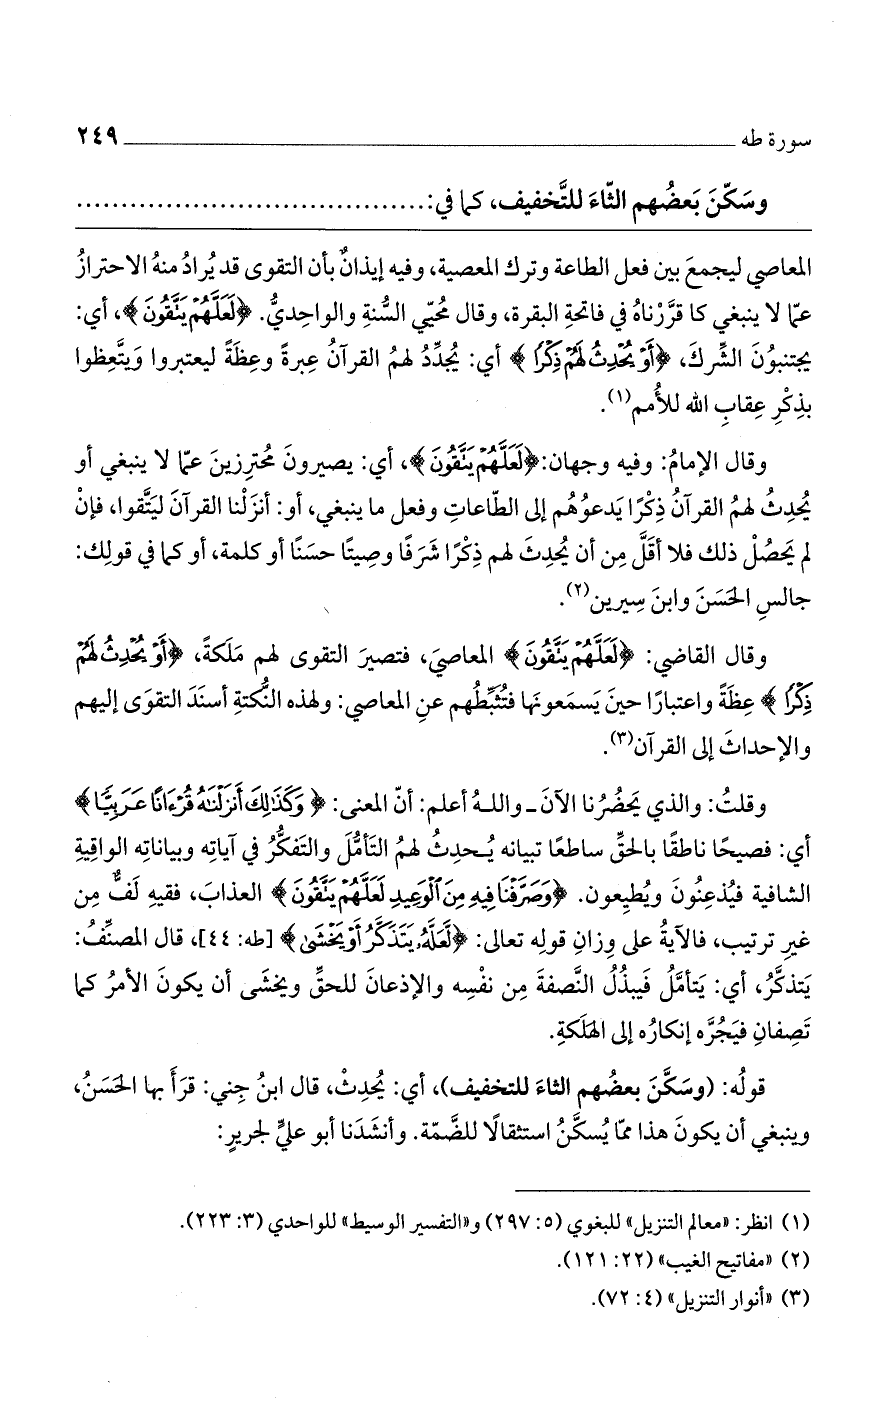 سورة طه ٢٤٩
وسَكّنَ بَعضُهم الثّاءَ للتَّخفيف، كما في: ......................................
المعاصي ليجمعَ بين فعل الطاعة وترك المعصية، وفيه إيذانٌ بأن التقوى قد يُرادُ منهُ الاحترازُ
عمّا لا ينبغي كما قرَّرْناهُ في فاتحةِ البقرة، وقال مُحيّي السُّنةِ والواحِديُّ. ﴿لَعَلَّهُمْ يَتَّقُونَ﴾، أي:
يجتنبوُنَ الشِّركَ، ﴿أَوْ يُحْدِثُ لَهُمْ ذِكْرًا﴾ أي: يُجدِّدُ لهمُ القرآنُ عِبرةً وعِظَةً ليعتبروا ويَتَّعِظوا
بذِكْرِ عِقابِ الله للأُمم(١).
وقال الإمامُ: وفيه وجهان:﴿لَعَلَّهُمْ يَتَّقُونَ﴾، أي: يصيرونَ مُحترِزينَ عمّا لا ينبغي أو
يُحدِثُ لهمُ القرآنُ ذِكْرًا يَدعوُهُم إلى الطّاعاتِ وفعل ما ينبغي، أو: أنزَلْنا القرآنَ ليَتَّقوا، فإنْ
لم يَحصُلْ ذلك فلا أقَلَّ مِن أن يُحدِثَ لهم ذِكْرًا شَرَفًا وصِيتًا حسَنًا أو كلمة، أو كما في قولِك:
جالسِ الحَسَنَ وابنَ سِيرين(٢).
وقال القاضي: ﴿لَعَلَّهُمْ يَتَّقُونَ﴾ المعاصيَ، فتصيرَ التقوى لهم مَلَكةً، ﴿أَوْ يُحْدِثُ لَهُمْ
ذِكْرًا﴾ عِظَةً واعتبارًا حينَ يَسمَعونَها فتُثَبِّطُهم عنِ المعاصي: ولهذه النُّكتةِ أسنَدَ التقوَى إليهم
والإحداثَ إلى القرآن(٣).
وقلتُ: والذي يَحضُرُنا الآنَ ـ واللهُ أعلم: أنّ المعنى: ﴿وَكَذَٰلِكَ أَنزَلْنَٰهُ قُرْءَانًا عَرَبِيًّا﴾
أي: فصيحًا ناطقًا بالحقِّ ساطعًا تبيانه يُحدِثُ لهمُ التأمُّلَ والتَفكُّرُ في آياتِه وبياناتِه الواقِيةِ
الشافية فيُذعِنُونَ ويُطِيعون. ﴿وَصَرَّفْنَا فِيهِ مِنَ ٱلْوَعِيدِ لَعَلَّهُمْ يَتَّقُونَ﴾ العذابَ، ففيهِ لَفٌّ مِن
غيرِ ترتيب، فالآيةُ على وِزانِ قولِه تعالى: ﴿لَّعَلَّهُۥ يَتَذَكَّرُ أَوْ يَخْشَىٰ﴾ [طه: ٤٤]، قال المصنِّفُ:
يَتذكَّرُ، أي: يَتأمَّلُ فَيبذُلُ النَّصفةَ مِن نفْسِه والإذعانَ للحقِّ ويخشَى أن يكونَ الأمرُ كما
تَصِفانِ فيَجُرَّه إنكارُه إلى الهَلَكةِ.
قولُه: (وسَكَّنَ بعضُهم الثاءَ للتخفيف)، أي: يُحدِثْ، قال ابنُ جِني: قرَأَ بها الحَسَنُ،
وينبغي أن يكونَ هذا ممّا يُسكَّنُ استثقالًا للضَّمّة. وأنشَدَنا أبو عليٍّ لجريرٍ:
(١) انظر: «معالم التنزيل» للبغوي (٥: ٢٩٧) و«التفسير الوسيط» للواحدي (٣: ٢٢٣).
(٢) «مفاتيح الغيب» (٢٢: ١٢١).
(٣) «أنوار التنزيل» (٤: ٧٢).